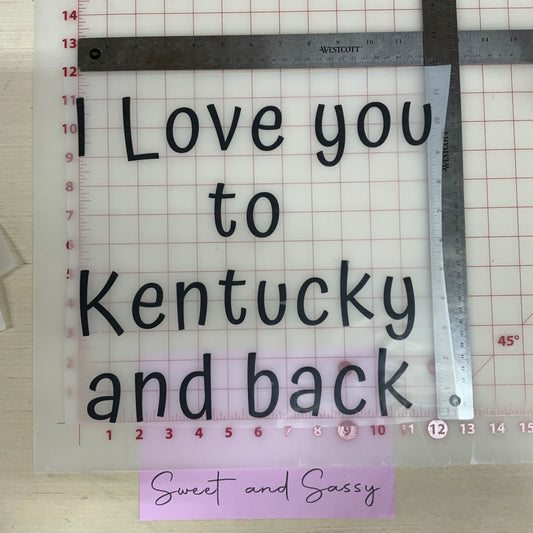 14
13
12
11
10
9
8
7
6
5
4
3
2
1
WESTCOTT
WESTCOTT
I Love you
to
Kentucky
and back
45°
1 2 3 4 5 6 7 8 9 10 11 12 13 14 15
Sweet and Sassy